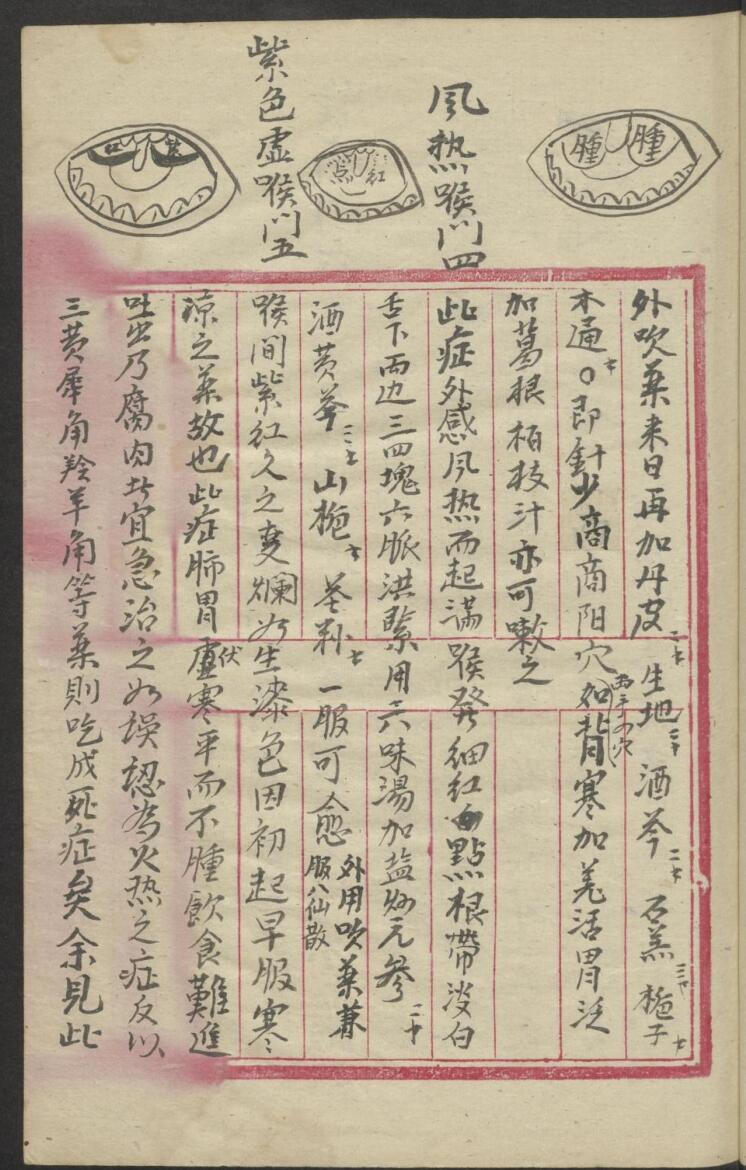 風热喉門四
紫色虛喉門五
腫 腫
点 紅
外吹藥来日再加丹皮 二七 生地 二 酒芩 二七 石羔 三 梔子 七
木通 七 〇即針少商商陽穴 两手四穴 如背寒加羌活胃泛
加葛根柏枝汁亦可嗽之
此症外感风热而起满喉發細紅点點根帶淡白
舌下两边三四塊六脈洪緊用六味湯加盐炒元參 二
酒黄芩 二七 山梔 七 花粉 七 一服可愈 外用吹藥兼服八仙散
喉间紫紅久之变爛如生漆色因初起早服寒
凉之藥故也此症肺胃虛 伏 寒平而不腫飲食難進
吐出乃腐肉者宜急治之如誤認為火热之症反以
三黄犀角羚羊角等藥則吃成死症矣余見此